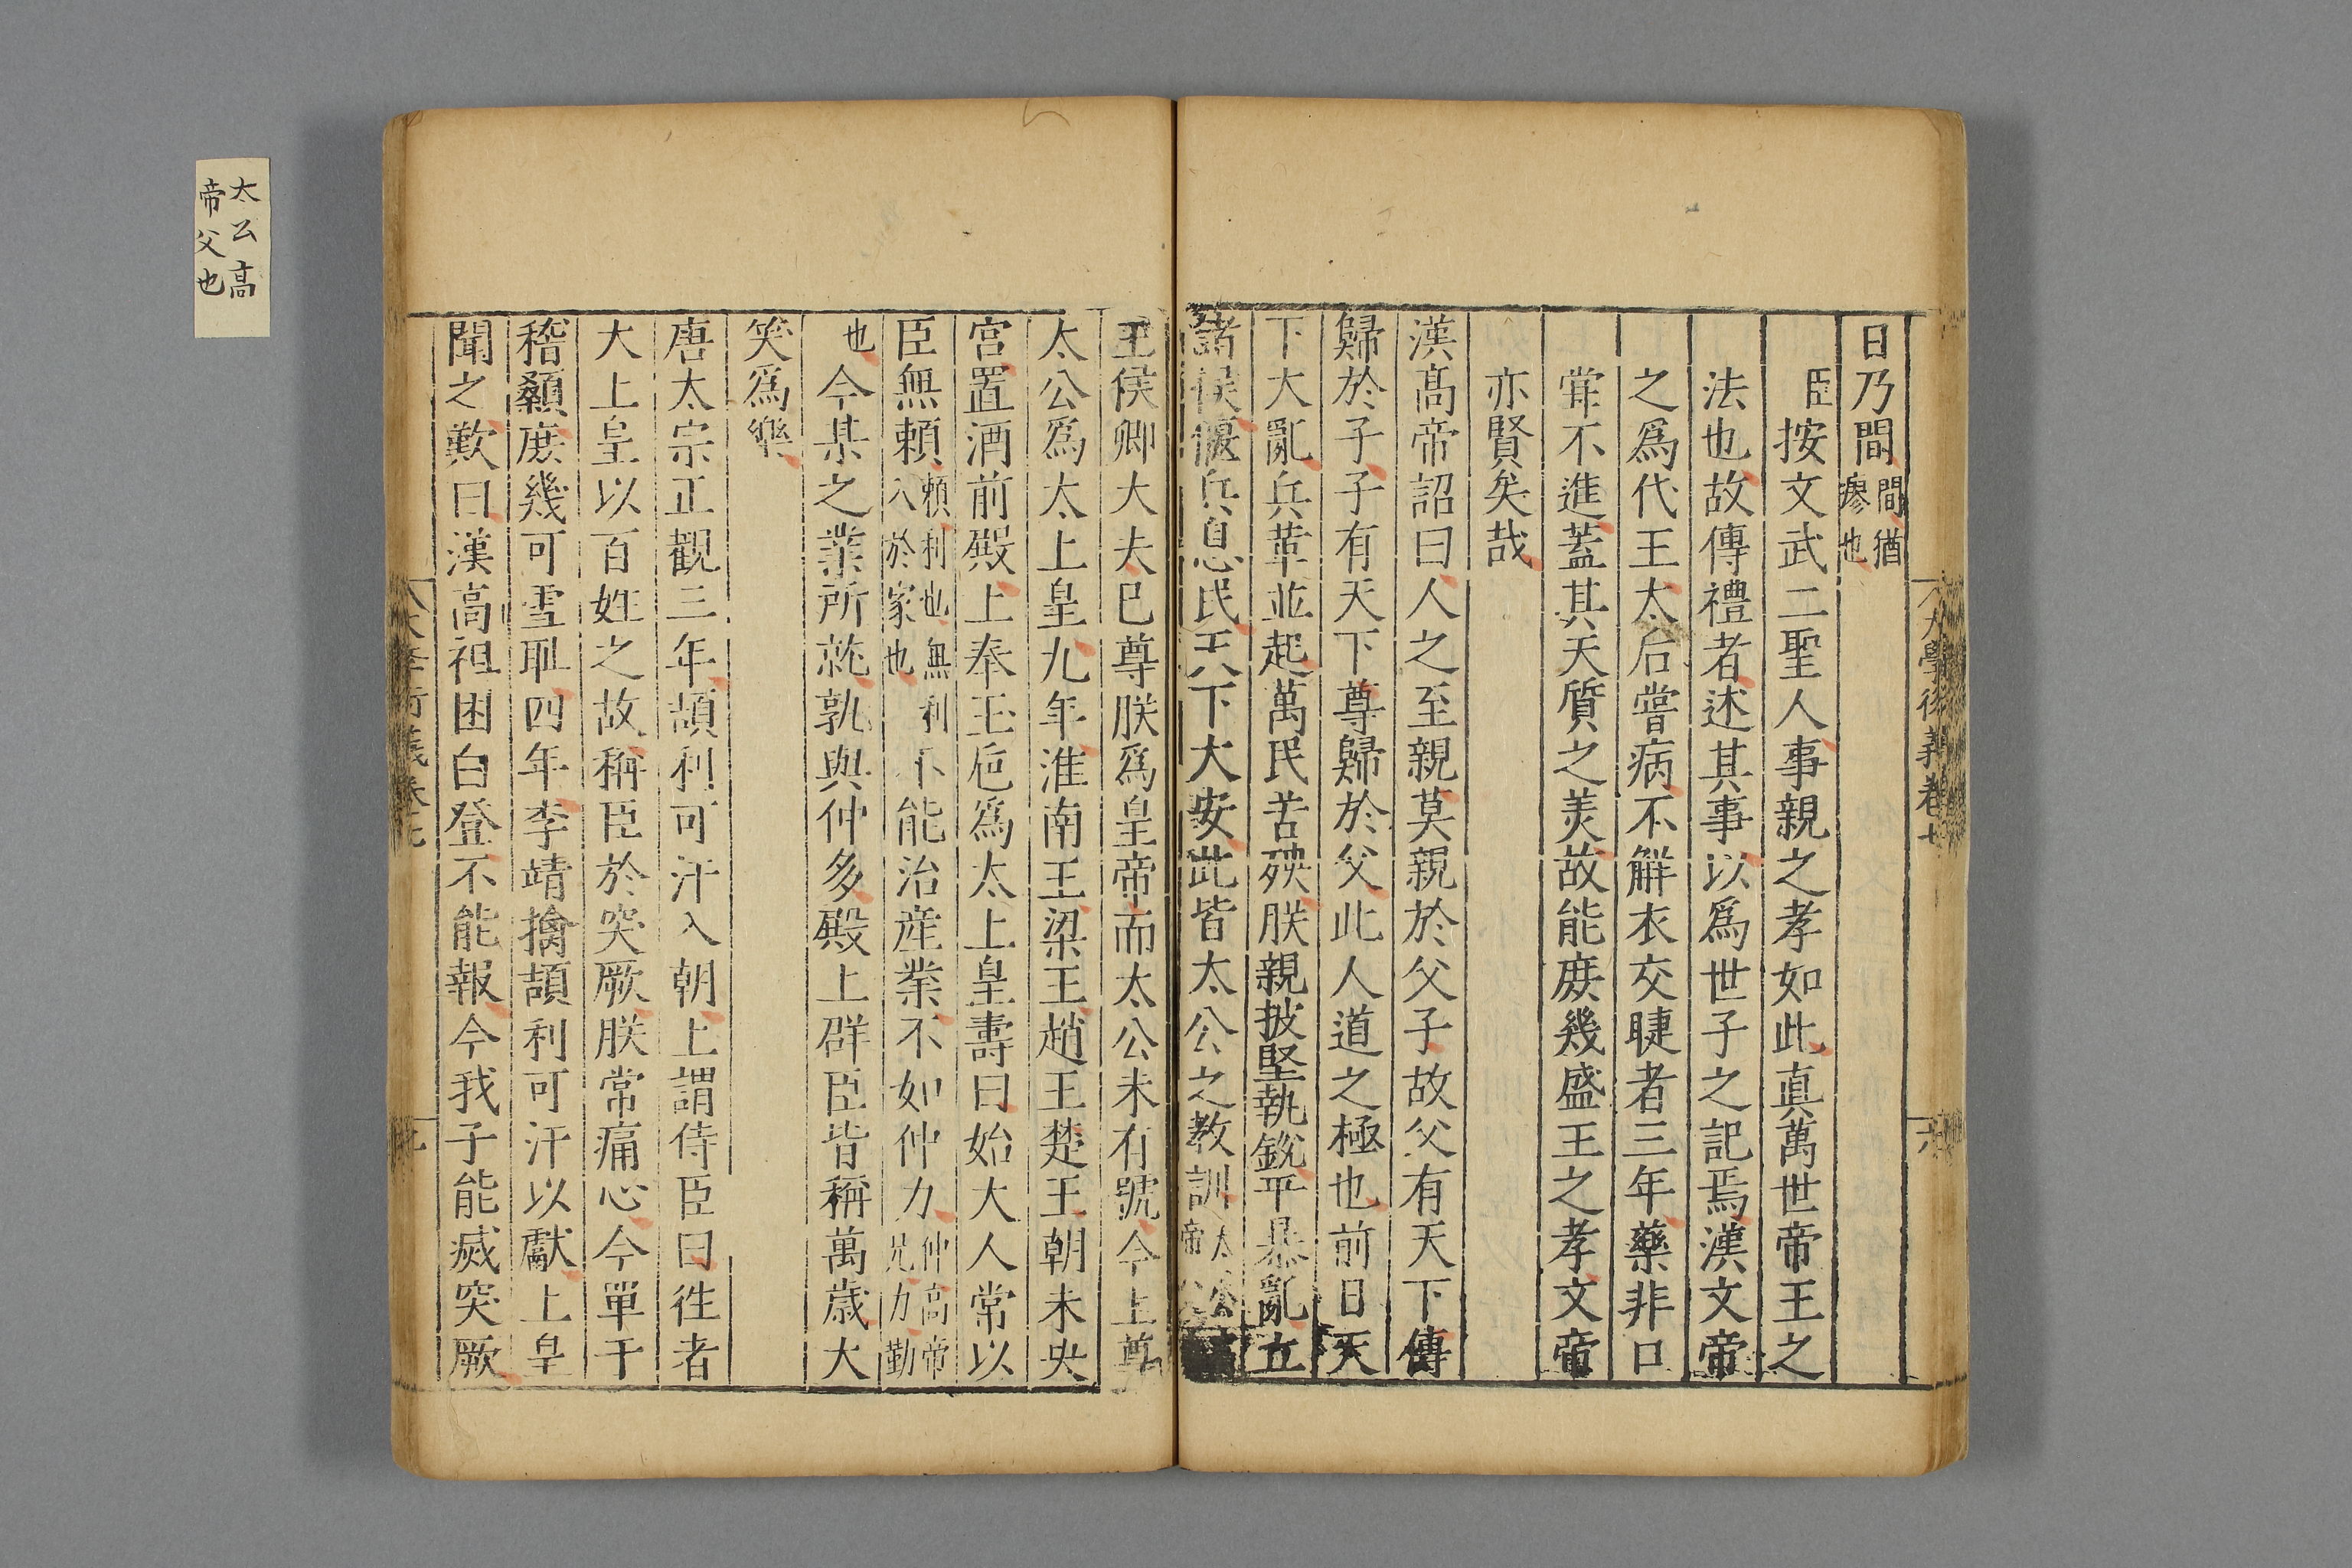 日乃間間猶瘳也
臣按文武二聖人事親之孝如此真萬世帝王之
法也故傳禮者述其事以為世子之記焉漢文帝
之爲代王太后嘗病不解衣交睫者三年藥非口
甞不進蓋其天質之美故能庶幾盛王之孝文帝
亦賢矣哉
漢髙帝詔曰人之至親莫親於父子故父有天下傳
歸於子子有天下尊歸於父此人道之極也前日天
下大亂兵革並起萬民苦殃朕親披堅執銳平暴亂立
諸侯偃兵息民天下大安此皆太公之教訓太公帝
王侯卿大夫巳尊朕爲皇帝而太公未有號今上尊
太公爲太上皇九年淮南王梁王趙王楚王朝未央
宮置酒前殿上奉玉巵爲太上皇壽曰始大人常以
臣無賴賴利也無利入於家也不能治産業不如仲力仲高帝兄力勤
也今某之業所就孰與仲多殿上群臣皆稱萬歲大
笑爲樂
唐太宗正觀三年頡利可汗入朝上謂侍臣曰往者
大上皇以百姓之故稱臣於突厥朕常痛心今單于
稽顙庶幾可雪耻四年李靖擒頡利可汗以獻上皇
聞之歎曰漢高祖困白登不能報今我子能滅突厥
大學衍義卷七
六
太公高
帝父也